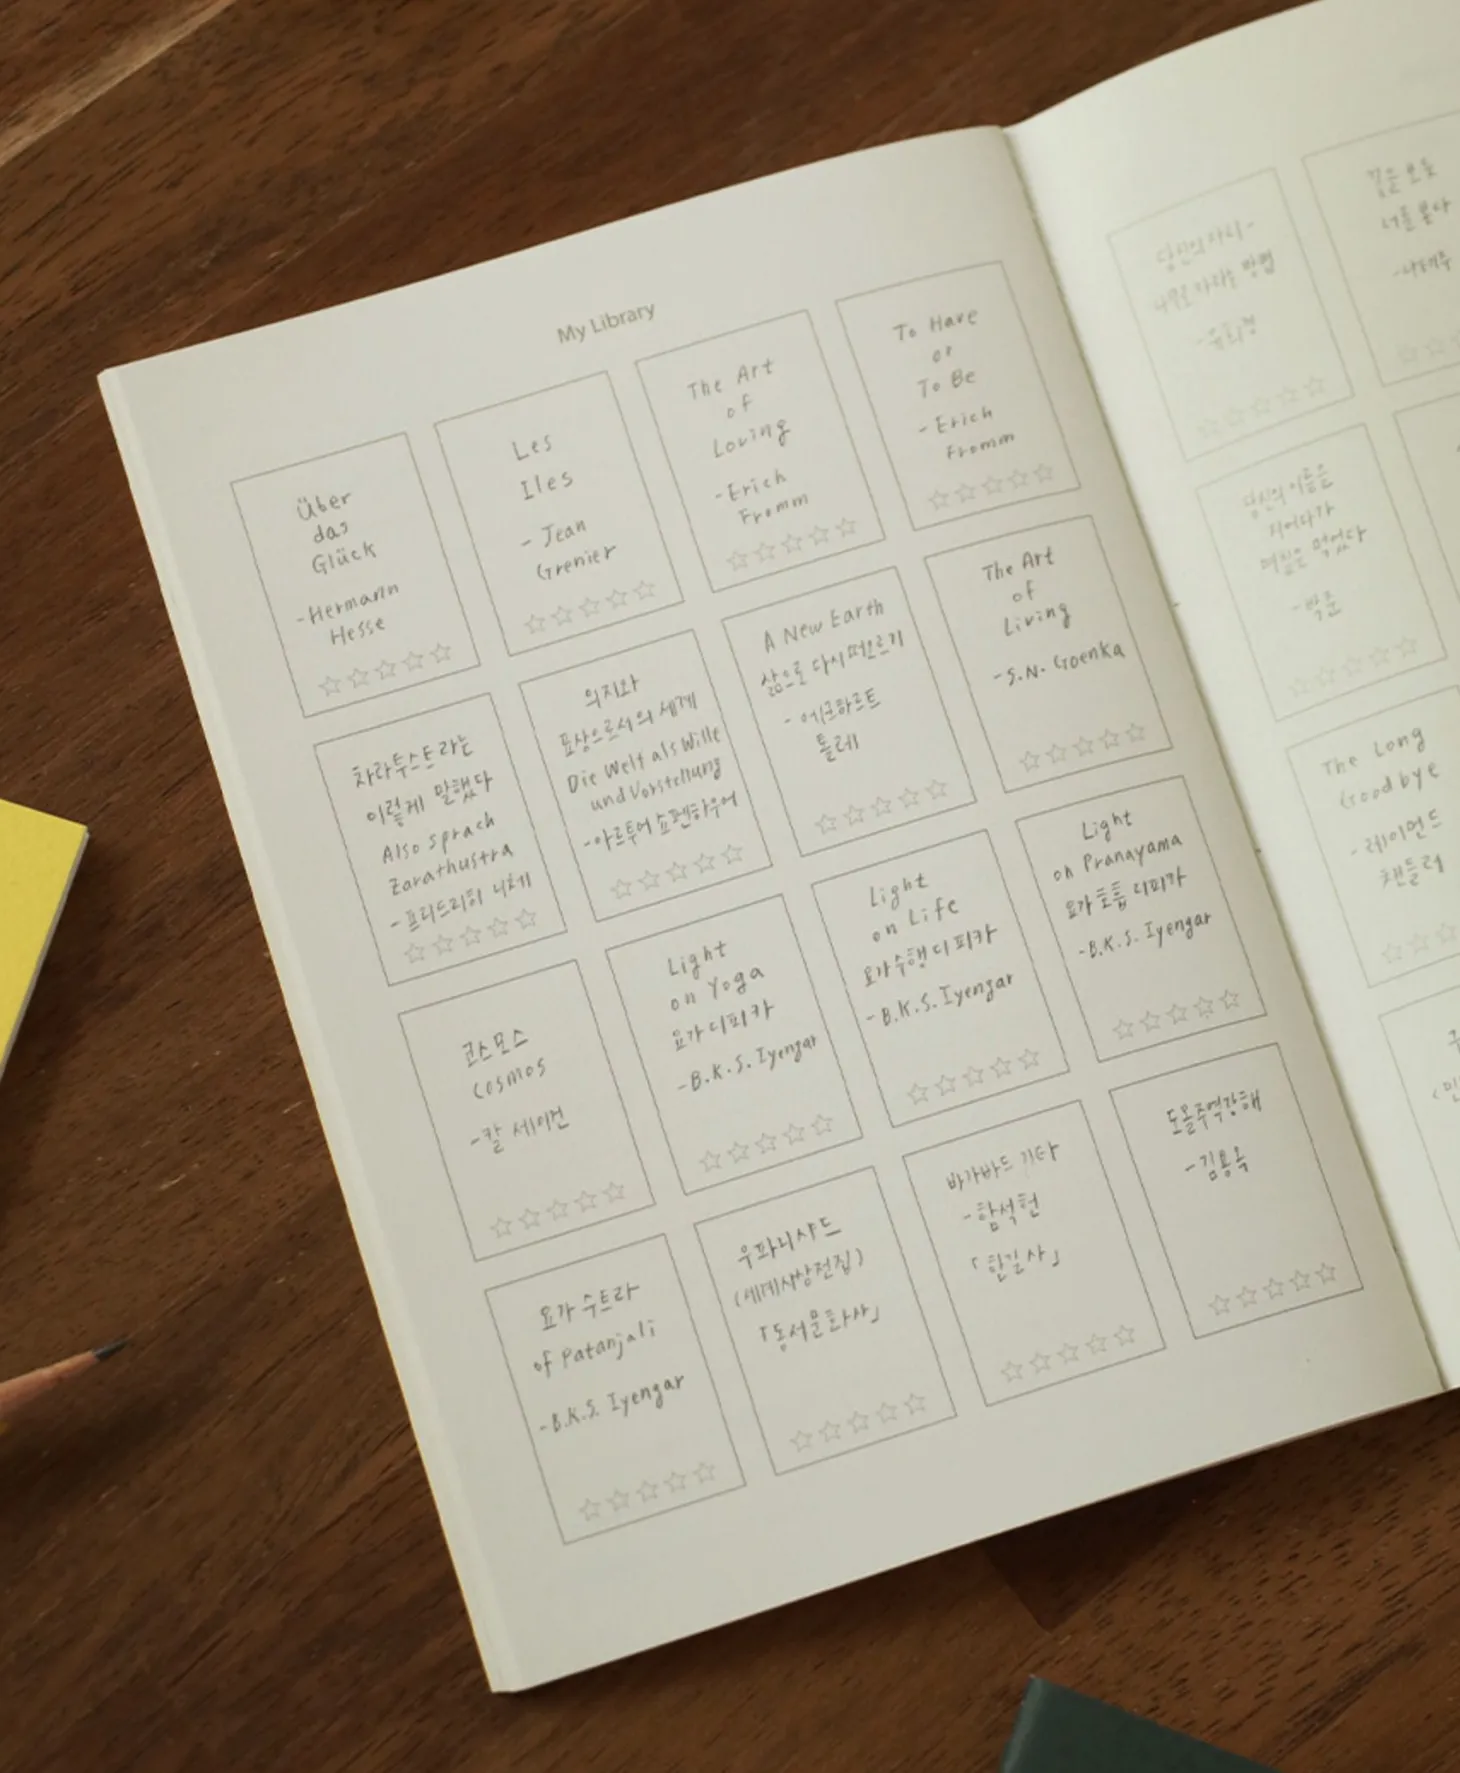 My Library
Über
das
Glück
-Hermann
Hesse
Les
Iles
- Jean
Grenier
The Art
of
Loving
-Erich
Fromm
To Have
or
To Be
-Erich
Fromm
차라투스트라는
이렇게 말했다
Also sprach
Zarathustra
-프리드리히 니체
의지와
표상으로서의 세계
Die Welt als Wille
und Vorstellung
-아르투어 쇼펜하우어
A New Earth
삶으로 다시 떠오르기
- 에크하르트
톨레
The Art
of
Living
-S.N. Goenka
코스모스
Cosmos
-칼 세이건
Light
on Yoga
요가 디피카
-B.K.S. Iyengar
Light
on Life
요가 수행 디피카
-B.K.S. Iyengar
Light
on Pranayama
요가 호흡 디피카
-B.K.S. Iyengar
요가 수트라
of Patanjali
-B.K.S. Iyengar
우파니샤드
(세계사상전집)
「동서문화사」
바가바드 기타
-함석헌
「한길사」
도올주역강해
-김용옥
당신의 자시-
너로 자라는 방법
-유희경
꽃을 보듯
너를 본다
-나태주
당신의 이름을
지어다가
며칠은 먹었다
-박준
The Long
Goodbye
-레이먼드
챈들러